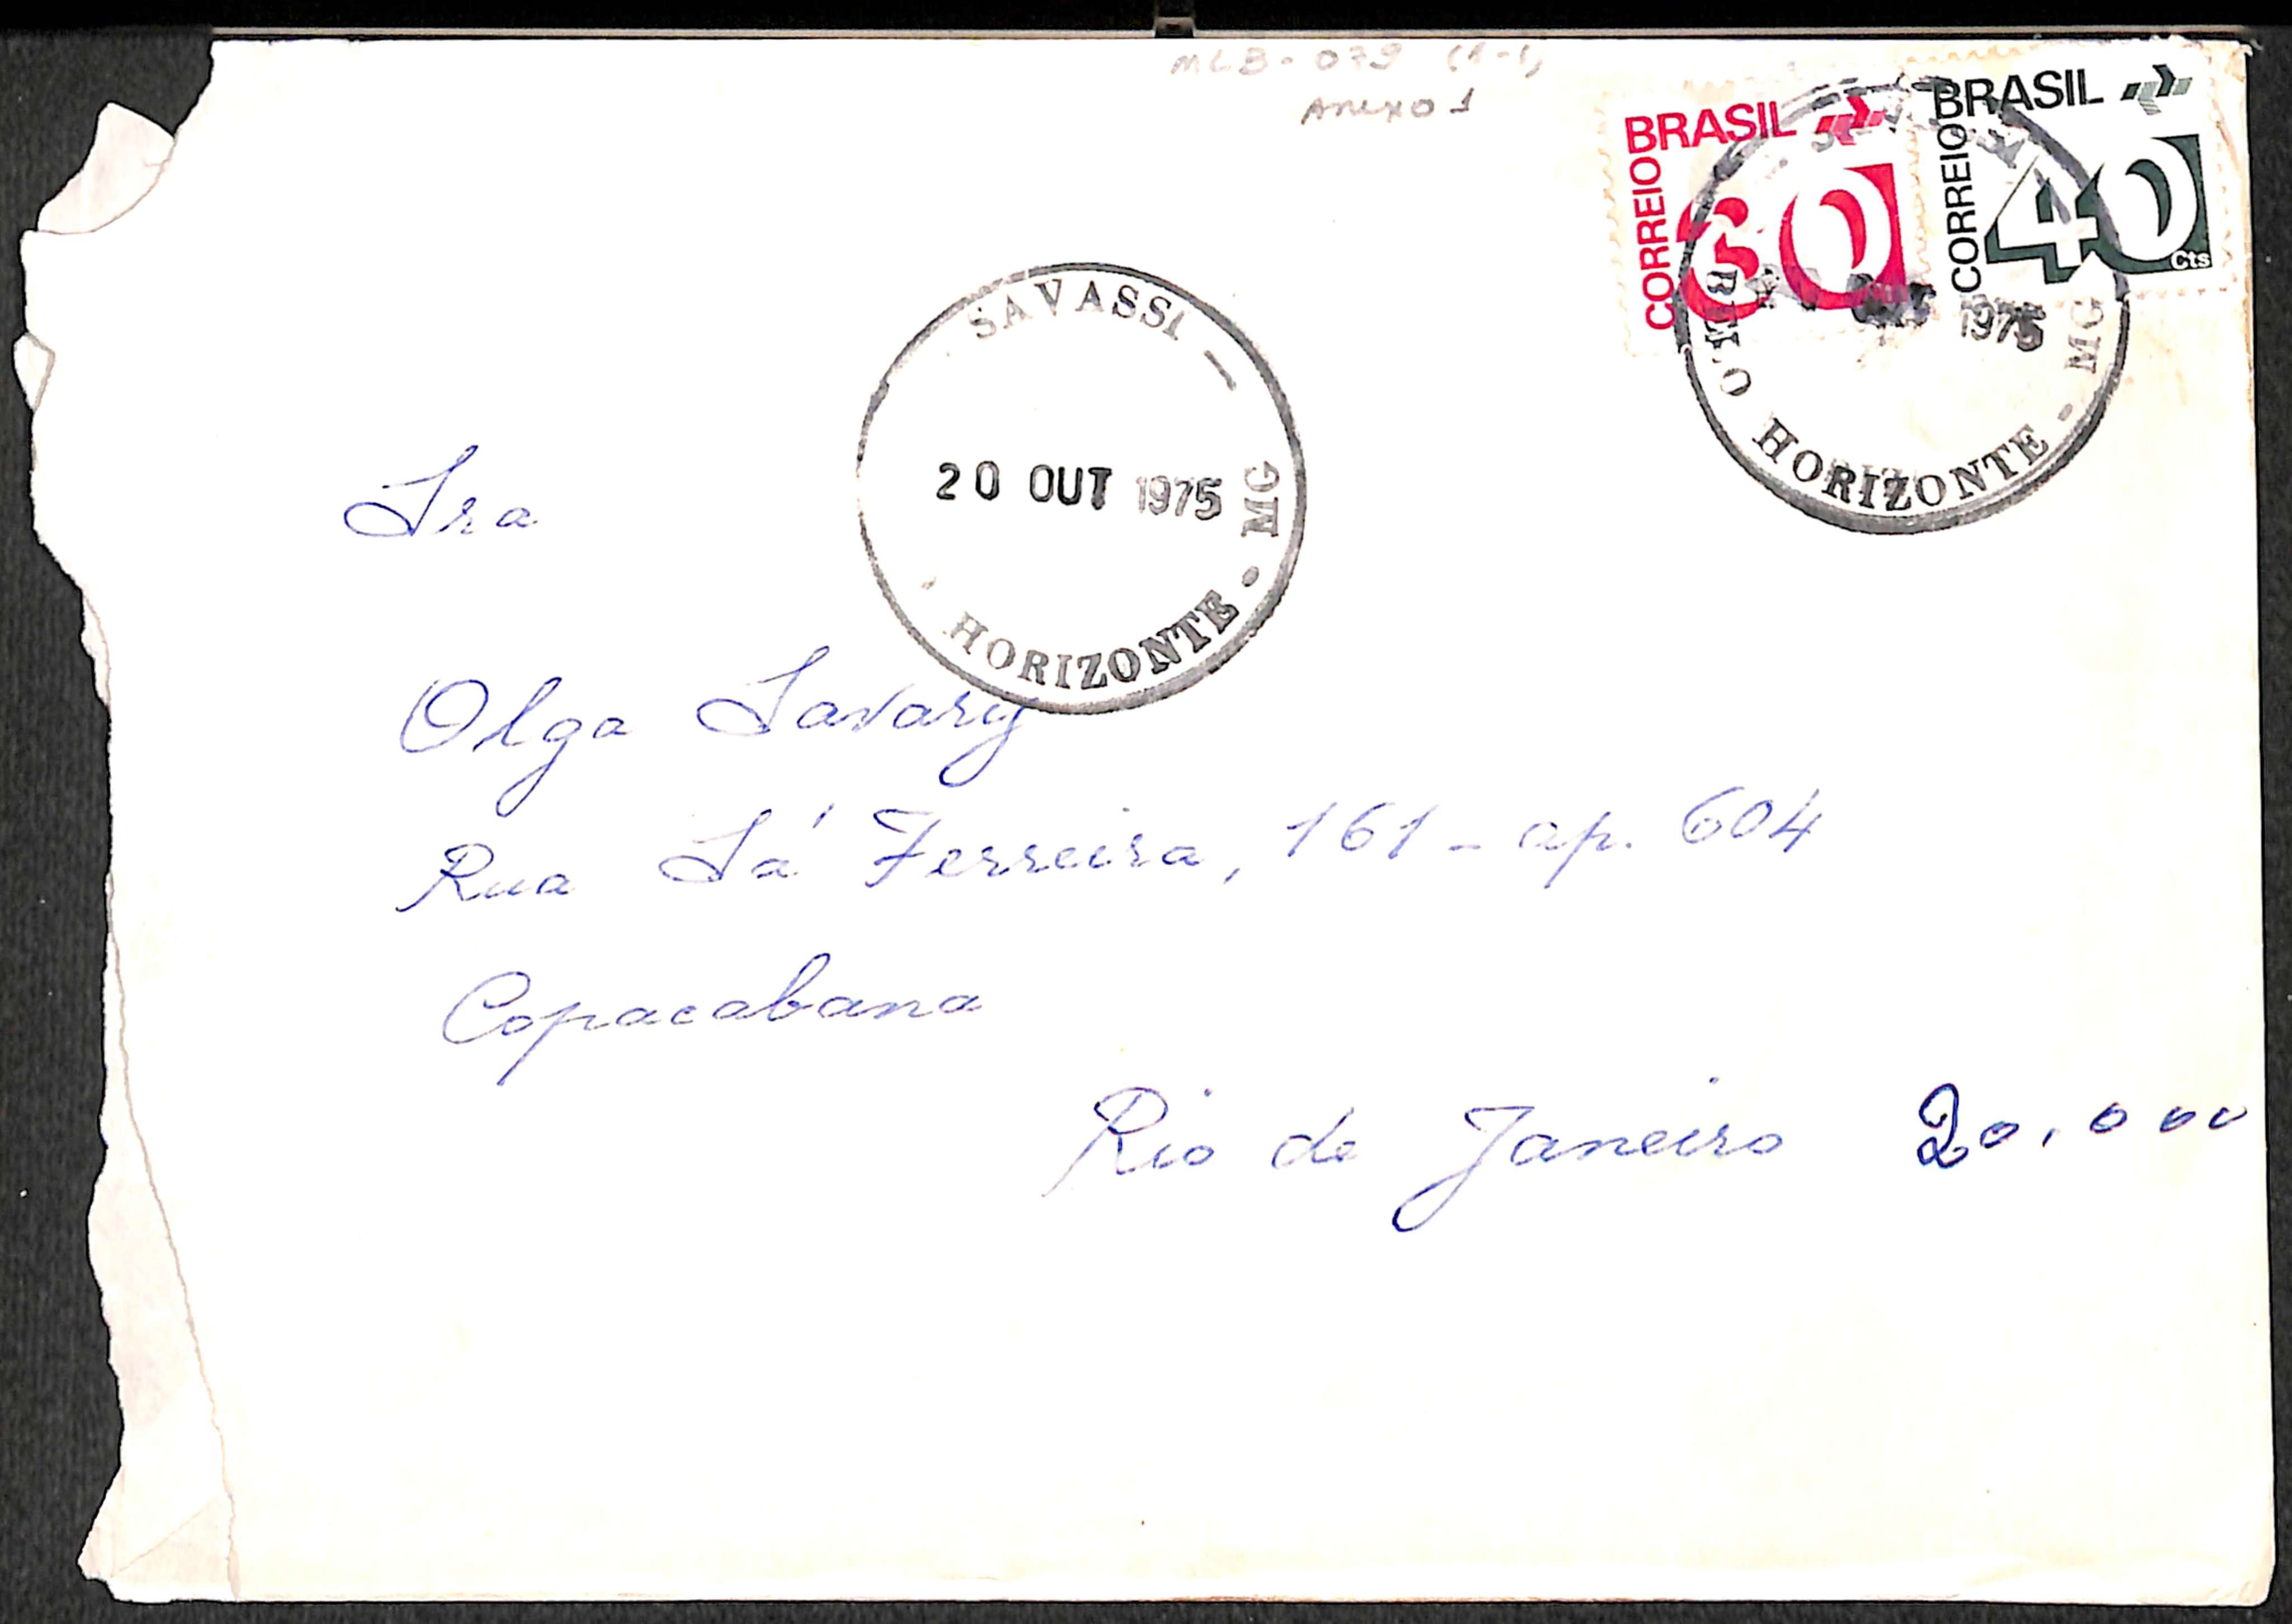 MLB-079 (1-1)
Anexo 1
BRASIL
CORREIO
60
BRASIL
CORREIO
40
Cts
1975
HORIZONTE - MG
SAVASSI -
20 OUT 1975
HORIZONTE • MG
Sra
Olga Savary
Rua Sá Ferreira, 161 - ap. 604
Copacabana
Rio de Janeiro 20.000